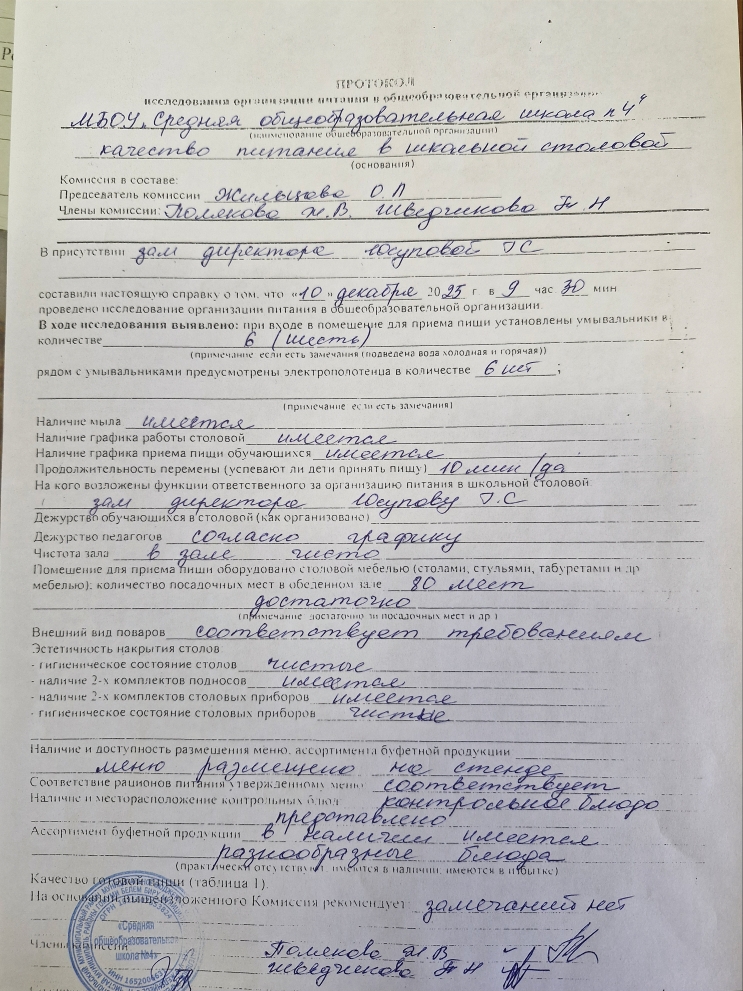 ПРОТОКОЛ
исследования организации питания в общеобразовательной организации
МБОУ "Средняя общеобразовательная школа №4"
(наименование общеобразовательной организации)
качество питания в школьной столовой
(основания)
Комиссия в составе:
Председатель комиссии Жильцова О.П
Члены комиссии: Полякова Ж.В. Шведчикова Т Н
В присутствии зам директора Юсуповой Г С
составили настоящую справку о том, что «10» декабря 2025 г. в 9 час 30 мин
проведено исследование организации питания в общеобразовательной организации.
В ходе исследования выявлено: при входе в помещение для приема пищи установлены умывальники в
количестве 6 (шесть)
(примечание если есть замечания (подведена вода холодная и горячая))
рядом с умывальниками предусмотрены электрополотенца в количестве 6 шт ;
(примечание если есть замечания)
Наличие мыла имеется
Наличие графика работы столовой имеется
Наличие графика приема пищи обучающихся имеется
Продолжительность перемены (успевают ли дети принять пищу) 10 мин / да
На кого возложены функции ответственного за организацию питания в школьной столовой
зам директора Юсупову Г.С
Дежурство обучающихся в столовой (как организовано)
Дежурство педагогов согласно графику
Чистота зала в зале чисто
Помещение для приема пищи оборудовано столовой мебелью (столами, стульями, табуретами и др
мебелью); количество посадочных мест в обеденном зале 80 мест
достаточно
(примечание достаточно ли посадочных мест и др )
Внешний вид поваров соответствует требованиям
Эстетичность накрытия столов
- гигиеническое состояние столов чистые
- наличие 2-х комплектов подносов имеется
- наличие 2-х комплектов столовых приборов имеется
- гигиеническое состояние столовых приборов чистые
Наличие и доступность размещения меню, ассортимента буфетной продукции
меню размещено на стенде
Соответствие рационов питания утвержденному меню соответствует
Наличие и месторасположение контрольных блюд контрольное блюдо
представлено
Ассортимент буфетной продукции в наличии имеется
разнообразные блюда
(практически отсутствует, имеются в наличии, имеются в избытке)
Качество готовой пищи (таблица 1).
На основании вышеизложенного Комиссия рекомендует: замечаний нет
Члены комиссии
«Средняя
общеобразовательная
школа №4»
Полякова Ж В
Шведчикова Т Н